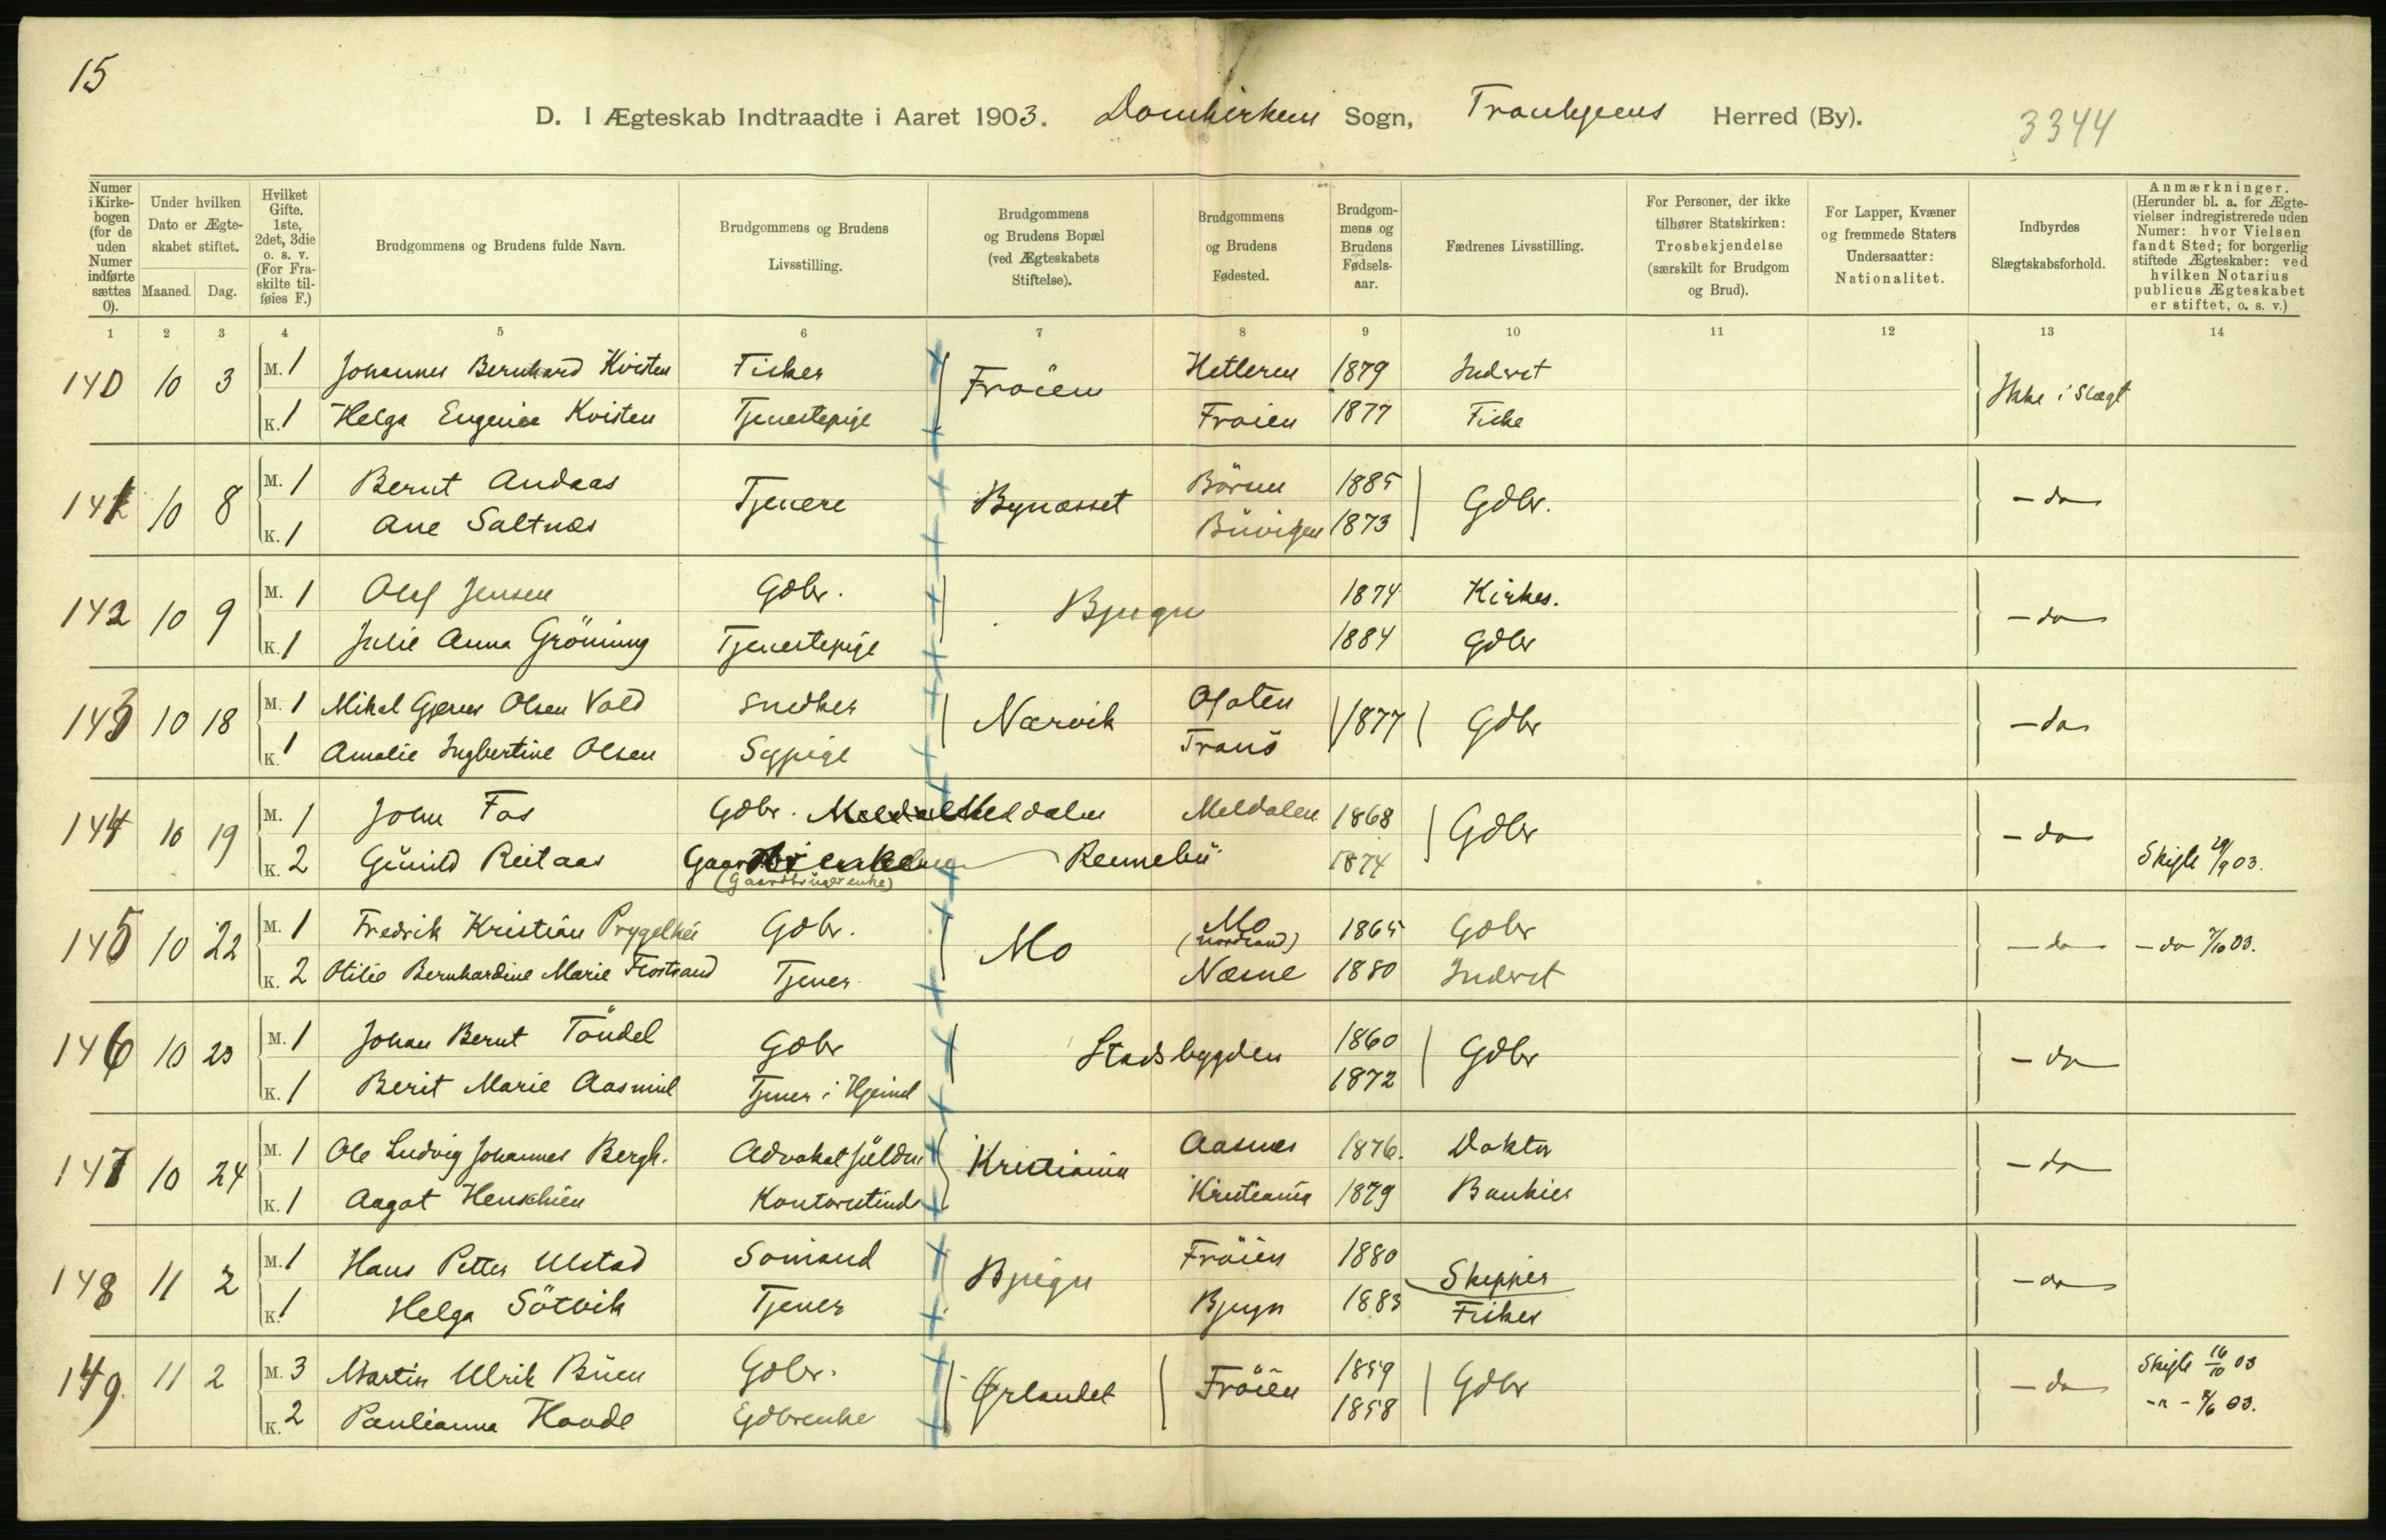 15
D. I Ægteskab Indtraadte i Aaret 1903. Domkirkens Sogn, Tronhjems Herred (By). 3344
Numer i Kirke-bogen (for de uden Numer indførte sættes 0).
Under hvilken Dato er Ægte-skabet stiftet.
Maaned. Dag.
Hvilket Gifte. 1ste, 2det, 3die o. s. v. (For Fra-skilte til-føies F.)
Brudgommens og Brudens fulde Navn.
Brudgommens og Brudens Livsstilling.
Brudgommens og Brudens Bopæl (ved Ægteskabets Stiftelse).
Brudgommens og Brudens Fødested.
Brudgom-mens og Brudens Fødsels-aar.
Fædrenes Livsstilling.
For Personer, der ikke tilhører Statskirken: Trosbekjendelse (særskilt for Brudgom og Brud).
For Lapper, Kvæner og fremmede Staters Undersaatter: Nationalitet.
Indbyrdes Slægtskabsforhold.
Anmærkninger. (Herunder bl. a. for Ægte-vielser indregistrerede uden Numer: hvor Vielsen fandt Sted; for borgerlig stiftede Ægteskaber: ved hvilken Notarius publicus Ægteskabet er stiftet, o. s. v.)
1 2 3 4 5 6 7 8 9 10 11 12 13 14
140 10 3 M. 1 Johannes Bernhard Kvisten Fisker Fröien Hitteren 1879 Inderst Ikke i Slægt
K. 1 Helga Eugenie Kvisten Tjenestepige Froien 1877 Fiske
141 10 8 M. 1 Bernt Andaas Tjenere Bynæsset Börsen 1885 Gdbr. - do
K. 1 Ane Saltnæs Büvigen 1873
142 10 9 M. 1 Olaf Jensen Gdbr. Bjugn 1874 Kirkes. - do
K. 1 Julie Anna Gröning Tjenestepige 1884 Gdbr
143 10 18 M. 1 Mikal Olsen Vold Snedker Narvik Ofoten 1877 Gdbr - do
K. 1 Amalie Ingbertine Olsen Sypige Tranö
144 10 19 M. 1 John Fos Gdbr. Meldalen Meldalen 1868 Gdbr - do
K. 2 Günild Reitaas (Gaardbrügerenke) Rennebü 1874 Skifte 29/9 03.
145 10 22 M. 1 Fredrik Kristian Gdbr. Mo Mo (Nordland) 1865 Gdbr - do - do 7/10 03.
K. 2 Otilie Bernhardine Marie Flostrand Tjener Næsne 1880 Inderst
146 10 23 M. 1 Johan Bernt Töndel Gdbr Stadsbygden 1860 Gdbr - do
K. 1 Berit Marie Tjener i Hjemmet 1872
147 10 24 M. 1 Ole Ludvig Johannes Bergh. Advokatfüldm Kristiania Aasnes 1876. Doktor - do
K. 1 Aagot Henschien Kontoristinde Kristiania 1879 Bankier
148 11 2 M. 1 Hans Petter Ulstad Sömand Bjugn Fröien 1880 Skipper - do
K. 1 Helga Sötvik Tjener Bjugn 1883 Fisker
149. 11 2 M. 3 Martin Ulrik Büen Gdbr. Ørlandet Fröien 1859 Gdbr - do Skifte 16/10 03
K. 2 Paulianna Hovde Gdbrenke 1858 - " - 03.